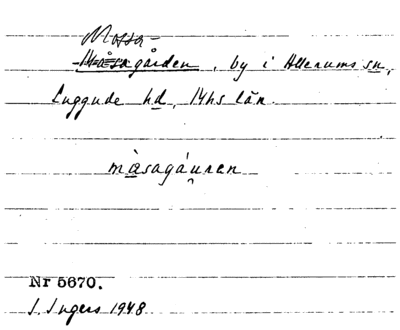 Mossa-
Måsagården, by i Allerums sn,
Luggude hd, Mhs län.
màsagáu̯ren
Nr 5670.
I. Ingers 1948